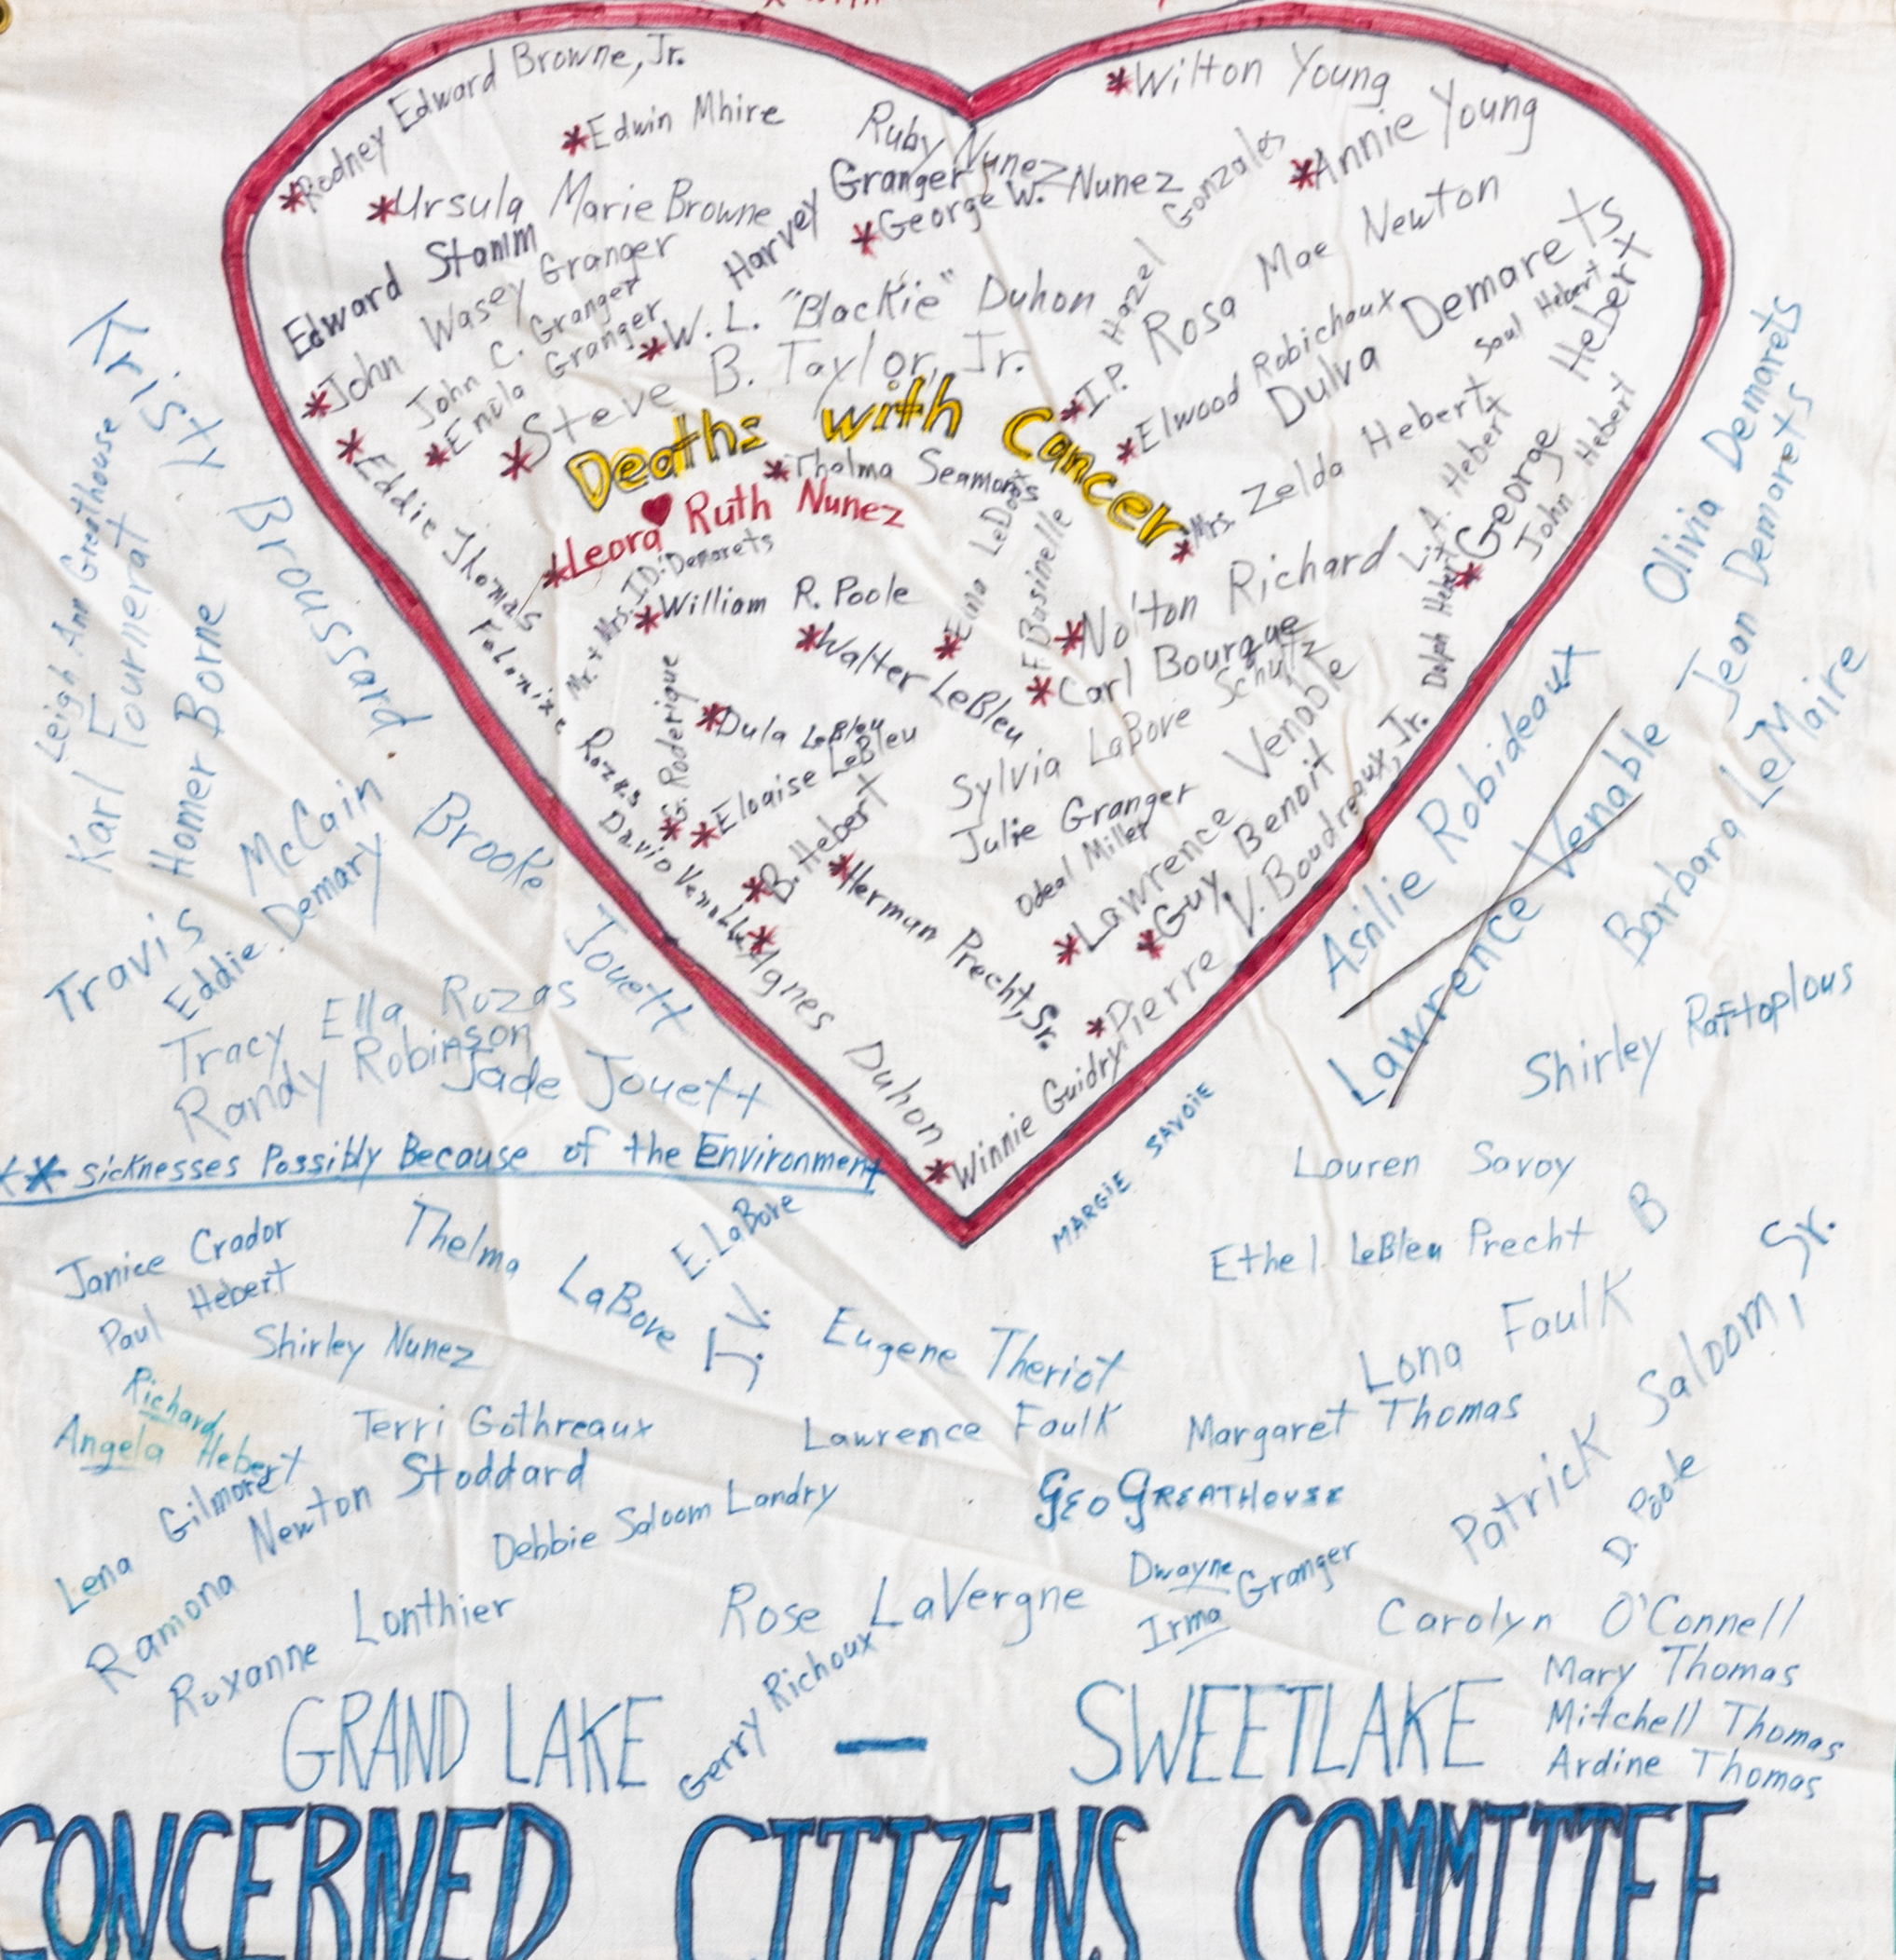 *Rodney Edward Browne, Jr.
*Edwin Mhire
*Ursula Marie Browne
Edward Stamm
*John Wasey Granger
John C. Granger
*Enola Granger
Harvey Granger
Ruby Nunez
*George W. Nunez
*W. L. "Blackie" Duhon
*Steve B. Taylor, Jr.
*Wilton Young
*Annie Young
Hazel Gonzales
*I.P.
Rosa Mae Newton
*Elwood Robichaux
Dulva Demarets
Saul Hebert
*George Hebert
John Hebert
*Mrs. Zelda Hebert
L. A. Hebert
Dolph Hebert
Deaths with Cancer
*Thelma Seamons
*Leora Ruth Nunez
Mr. + Mrs. I.D. Demarets
*Eddie Thomas
*William R. Poole
*Walter LeBleu
*Edna LeDoux
*F. Businelle
*Nolton Richard
*Carl Bourque
Sylvia LaBove Schultz
Julie Granger
Odeal Miller
*Lawrence Venable
*Guy Benoit
*Pierre V. Boudreaux, Jr.
Rozas
David Venable
*G. Roderique
*Dula LeBleu
*Eloaise LeBleu
*B. Hebert
*Herman Precht, Sr.
*Agnes Duhon
*Winnie Guidry
Kristy Broussard
Leigh Ann Greathouse
Karl Fournerat
Homer Borne
Travis McCain
Eddie Demary
Brooke Jouett
Tracy Ella Rozas
Randy Robinson
Jade Jouett
Olivia Demarets
Jean Demorets
Ashlie Robideaux
Lawrence Venable
Barbara LeMaire
Shirley Raftoplous
MARGIE SAVOIE
Lauren Savoy
** Sicknesses Possibly Because of the Environment
Janice Crador
Paul Hebert
Shirley Nunez
Thelma LaBove
E. LaBove
J. V.
Eugene Theriot
Ethel LeBleu Precht
B
Lona Faulk
Patrick Saloom, Sr.
Richard
Angela Hebert
Terri Gothreaux
Lawrence Faulk
Margaret Thomas
Lena Gilmore
Ramona Newton Stoddard
Debbie Saloom Landry
Geo Greathouse
D. Poole
Roxanne Lonthier
Rose LaVergne
Dwayne
Irma Granger
Carolyn O'Connell
Mary Thomas
Mitchell Thomas
Ardine Thomas
Gerry Richoux
GRAND LAKE — SWEETLAKE
CONCERNED CITIZENS COMMITTEE